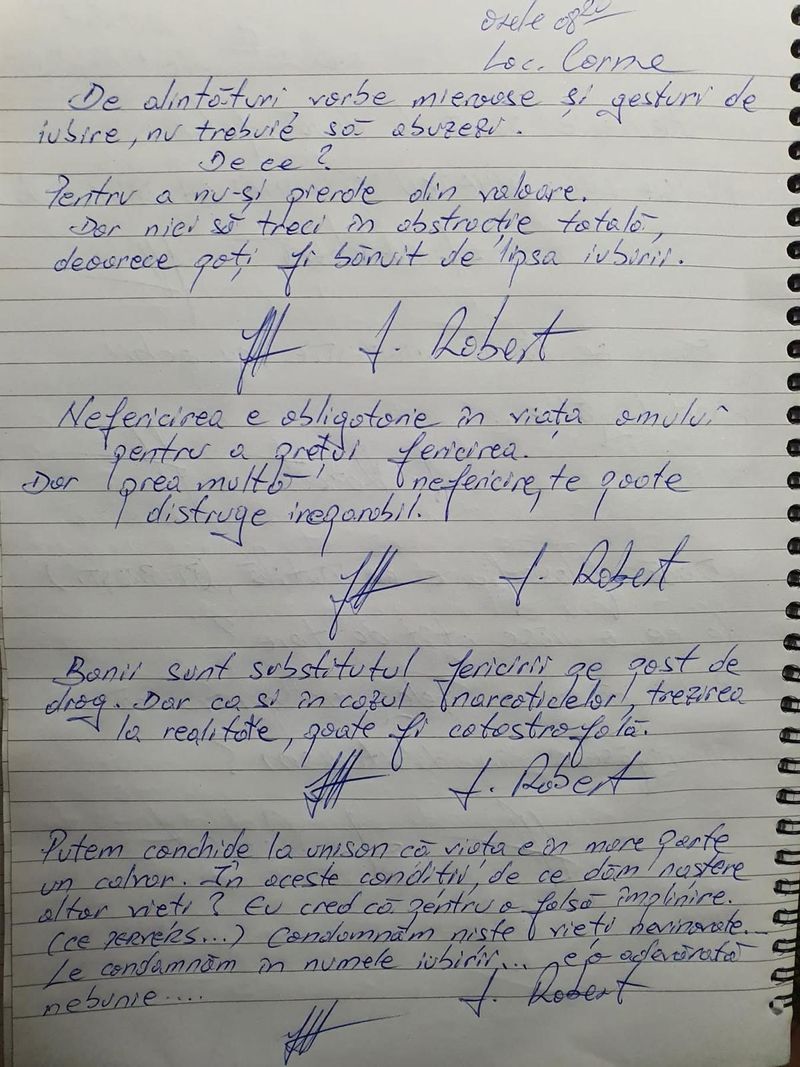 Orele 08²⁰
Loc. Corme
De alintături, vorbe mieroase și gesturi de
iubire, nu trebuie să abuzezi.
De ce?
Pentru a nu-și pierde din valoare.
Dar nici să treci în abstracție totală,
deoarece poți fi bănuit de lipsa iubirii.
J. Robert
Nefericirea e obligatorie în viața omului
pentru a prețui fericirea.
Dar prea multă nefericire, te poate
distruge ireparabil.
J. Robert
Banii sunt substitutul fericirii pe post de
drog. Dar ca si în cazul narcoticelor, trezirea
la realitate, poate fi catastrofală.
J. Robert
Putem conchide la unison că viața e în mare parte
un calvar. În aceste condiții, de ce dăm naștere
altor vieți? Eu cred că pentru o falsă împlinire.
(ce PERVERS...) Condamnăm niște vieți nevinovate...
Le condamnăm în numele iubirii... e o adevărată
nebunie....
J. Robert